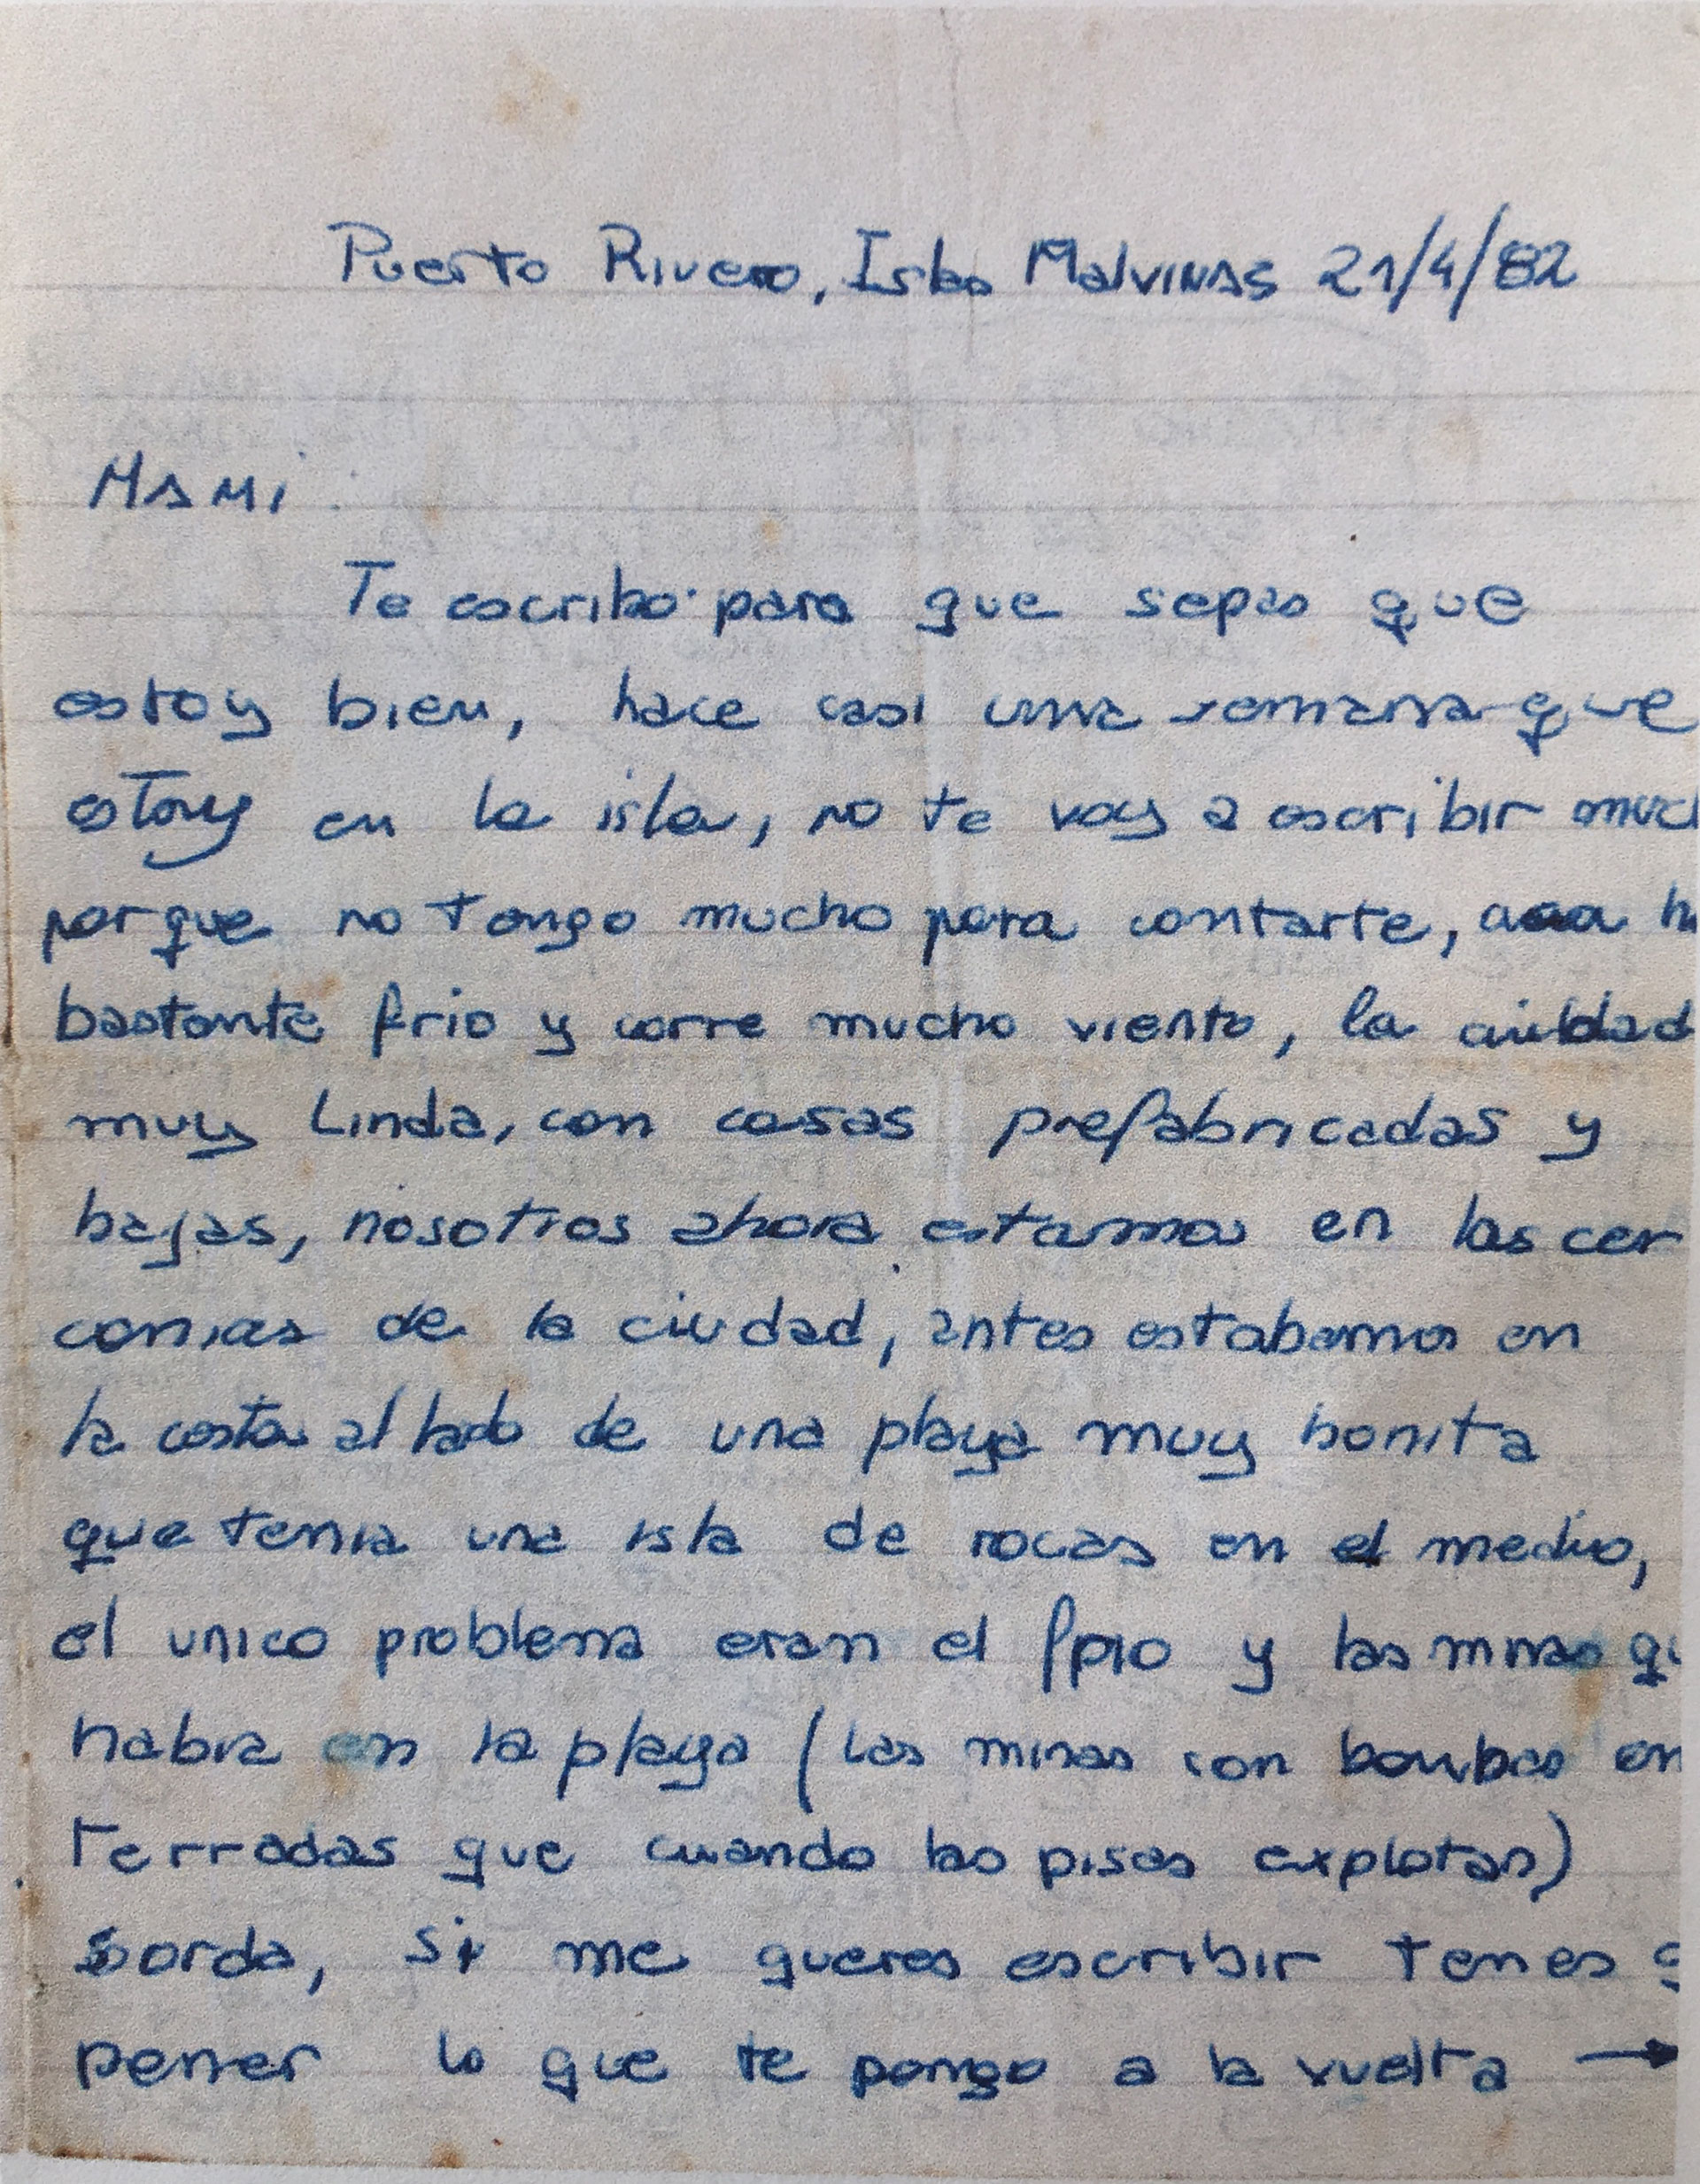 Puerto Rivero, Islas Malvinas 21/4/82
Mami:
Te escribo para que sepas que
estoy bien, hace casi una semana que
estoy en la isla, no te voy a escribir muc
porque no tengo mucho para contarte, h
bastante frio y corre mucho viento, la ciudad
muy Linda, con casas prefabricadas y
bajas, nosotros ahora estamos en las cer
canias de la ciudad, antes estabamos en
la costa al lado de una playa muy bonita
que tenia una isla de rocas en el medio,
el unico problema eran el frio y las minas qu
habia en la playa (las minas son bombas en
terradas que cuando las pisas explotan)
sorda, si me queres escribir tenes q
poner lo que te pongo a la vuelta →